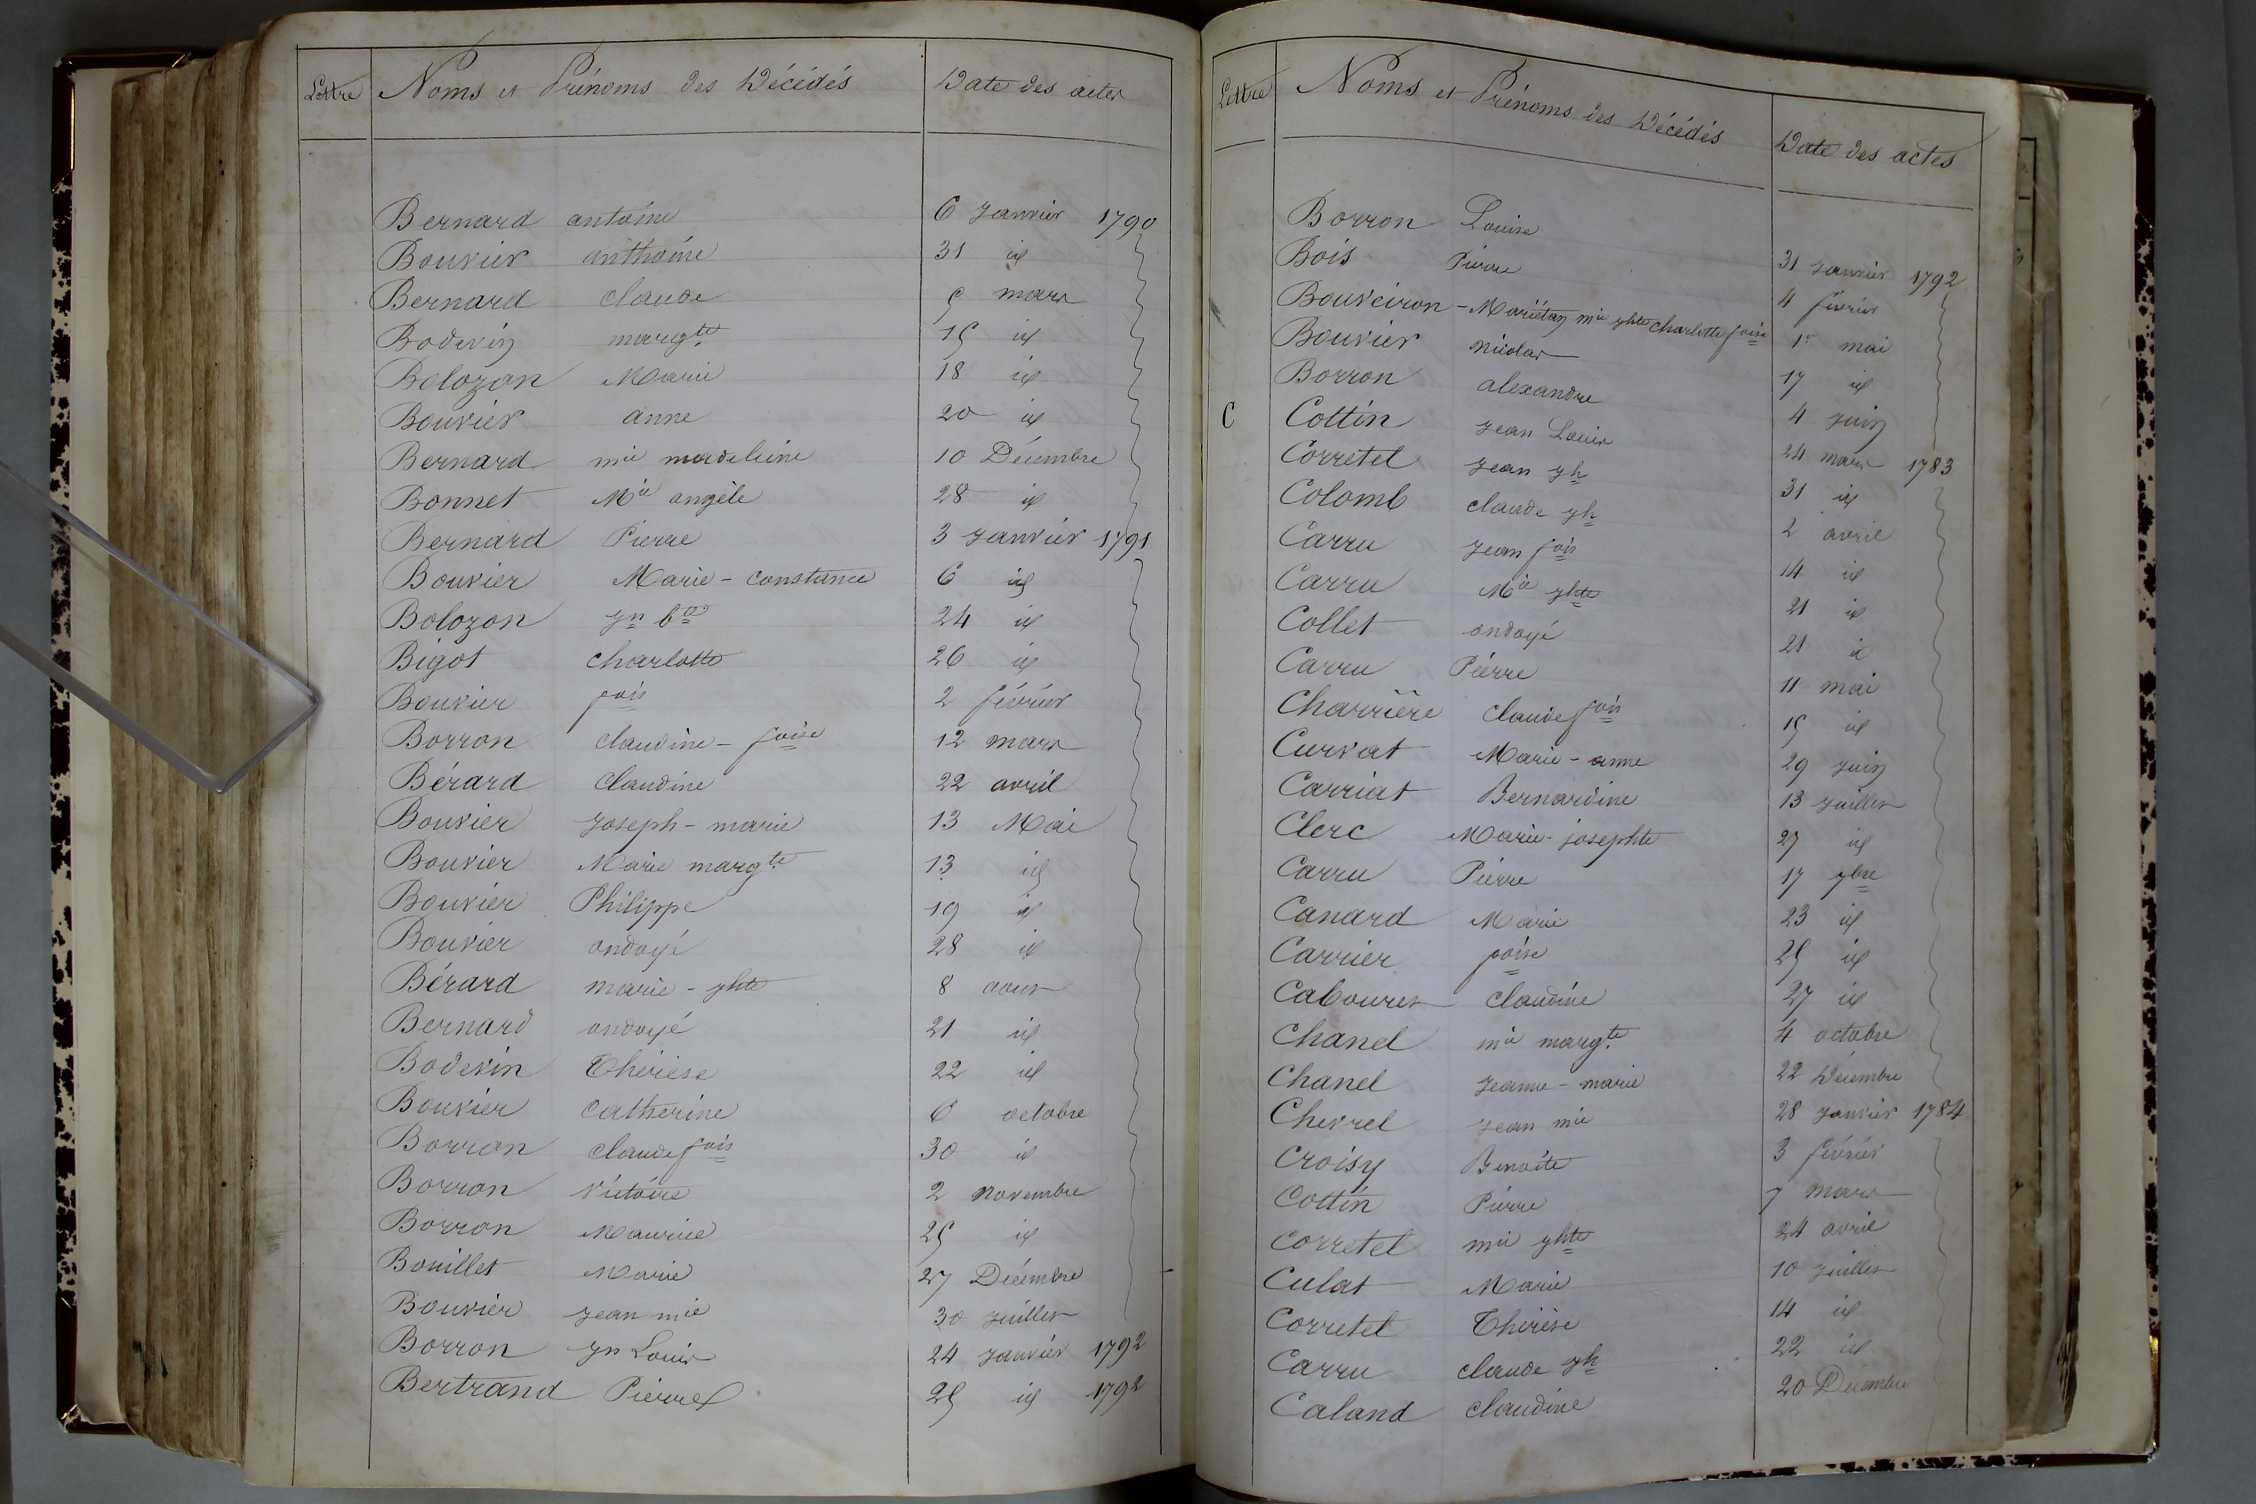 Lettre Noms et Prénoms des Décédés Date des actes
Bernard antoine 6 Janvier 1790
Bouvier anthoine 31 id
Bernard claude 9 mars
Bodevin margte 15 id
Bolozon Marie 18 id
Bouvier anne 20 id
Bernard mie madeleine 10 Décembre
Bonnet Mie angèle 28 id
Bernard Pierre 3 Janvier 1791
Bouvier Marie - constance 6 id
Bolozon Jn bte 24 id
Bigot charlotte 26 id
Bouvier fois 2 février
Borron claudine - foise 12 mars
Bérard claudine 22 avril
Bouvier Joseph - marie 13 Mai
Bouvier Marie margte 13 id
Bouvier Philippe 19 id
Bouvier ondoyé 28 id
Bérard marie - jhte 8 aout
Bernard ondoyé 21 id
Bodevin Thérèse 22 id
Bouvier Catherine 6 octobre
Borron claude fois 30 id
Borron victoire 2 novembre
Borron Maurice 25 id
Bouillet Marie 27 Décembre
Bouvier Jean mie 30 Juillet
Borron Jn Louis 24 Janvier 1792
Bertrand Pierre 25 id 1792
Lettre Noms et Prénoms des Décédés Date des actes
Borron Louise 31 Janvier 1792
Bois Pierre 4 février
Bouveiron - Mariétan mie jhte charlotte foise 1er mai
Bouvier nicolas 17 id
Borron alexandre 4 Juin
C Cottin Jean Louis 24 mars 1783
Corretel Jean jh 31 id
Colomb claude jh 2 avril
Carru Jean fois 14 id
Carru Mie jhte 21 id
Collet ondoyé 21 id
Carru Pierre 11 mai
Charrière claude fois 15 id
Curvat Marie - anne 29 Juin
Carriat Bernardine 13 Juillet
Clerc Marie - josephte 27 id
Carru Pierre 17 7bre
Canard Marie 23 id
Carrier foise 25 id
Cabouret claudine 27 id
Chanel mie margte 4 octobre
Chanel Jeanne - marie 22 Décembre
Chevrel Jean mie 28 Janvier 1784
Croisy Benoite 3 février
Cottin Pierre 7 mars
Corretel mie jhte 24 avril
Culat Marie 10 Juillet
Corretel Thérèse 14 id
Carru claude jh 22 id
Caland claudine 20 Décembre